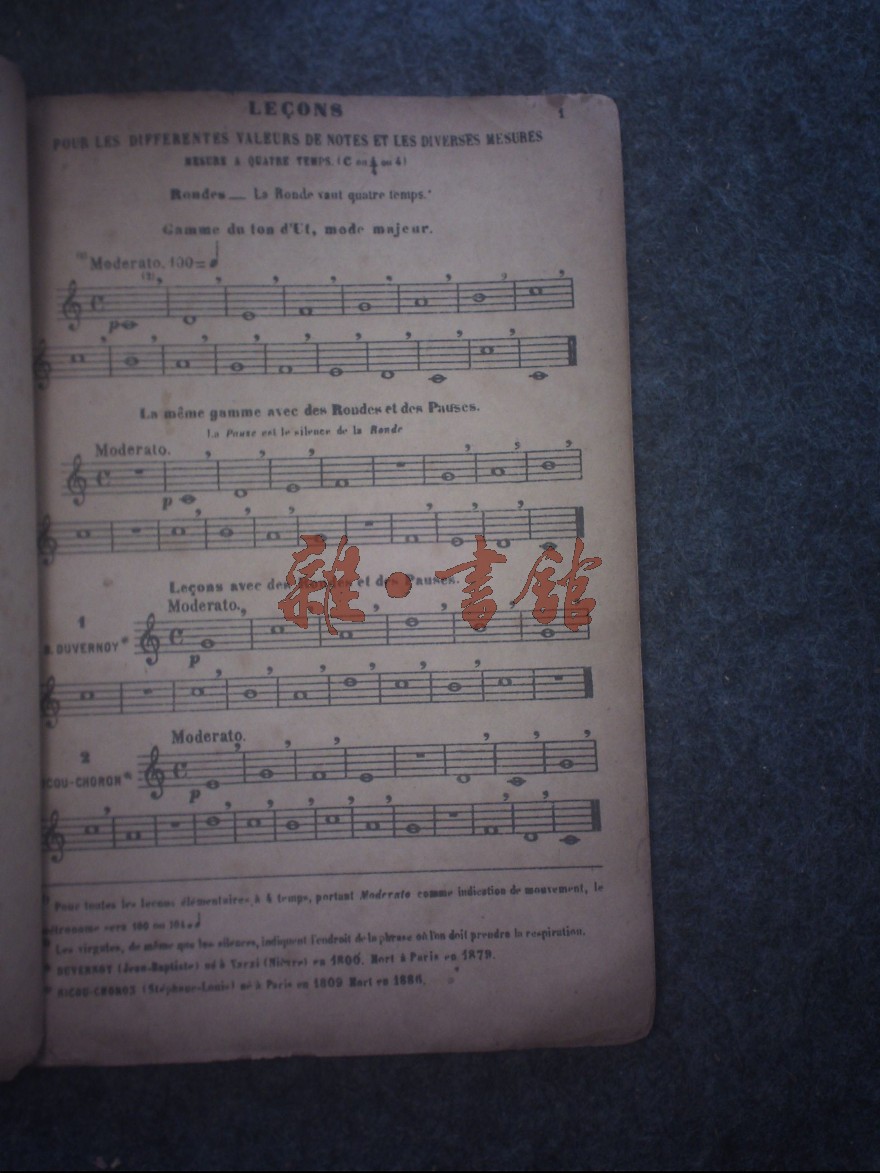 LEÇONS
1
POUR LES DIFFERENTES VALEURS DE NOTES ET LES DIVERSES MESURES
MESURE A QUATRE TEMPS. (C ou 4/4 ou 4)
Rondes — La Ronde vaut quatre temps.
Gamme du ton d'Ut, mode majeur.
Moderato. 100 = ♩
(2)
p
La même gamme avec des Rondes et des Pauses.
La Pause est le silence de la Ronde
Moderato.
p
雜·書館
Leçons avec des Rondes et des Pauses.
Moderato.
1
DUVERNOY*
p
Moderato.
2
COU-CHORON*
p
Pour toutes les leçons élémentaires, à 4 temps, portant Moderato comme indication de mouvement, le
métronome sera 100 ou 104 = ♩
Les virgules, de même que les silences, indiquent l'endroit de la phrase où l'on doit prendre la respiration.
DUVERNOY (Jean-Baptiste) né à (Nièvre) en 1800. Mort à Paris en 1879.
NICOU-CHORON (Stéphane-Louis) né à Paris en 1809 Mort en 1886.